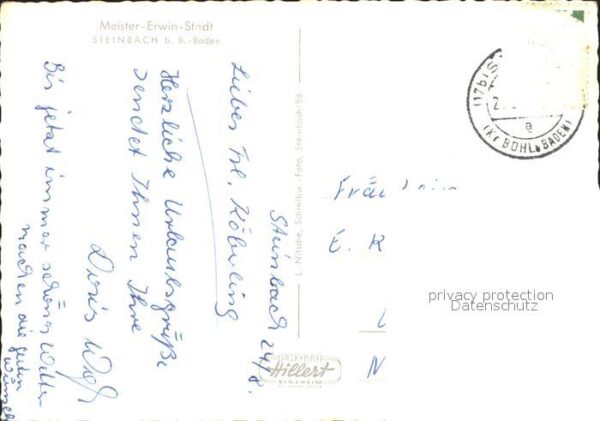 Meister-Erwin-Stadt
STEINBACH b. B.-Baden
Steinbach 24/8.
Liebes Frl. Köbeling
Herzliche Urlaubsgrüße
sendet Ihnen Ihre
Doris
Bis jetzt immer schönes Wetter
machen die guten
L. Nitsche, Schreibw.-Foto, Steinbach/Bd.
Hillert
(17b) S
2
a
(Kr BÜHL BADEN)
Fräulein
E. K
N
privacy protection
Datenschutz